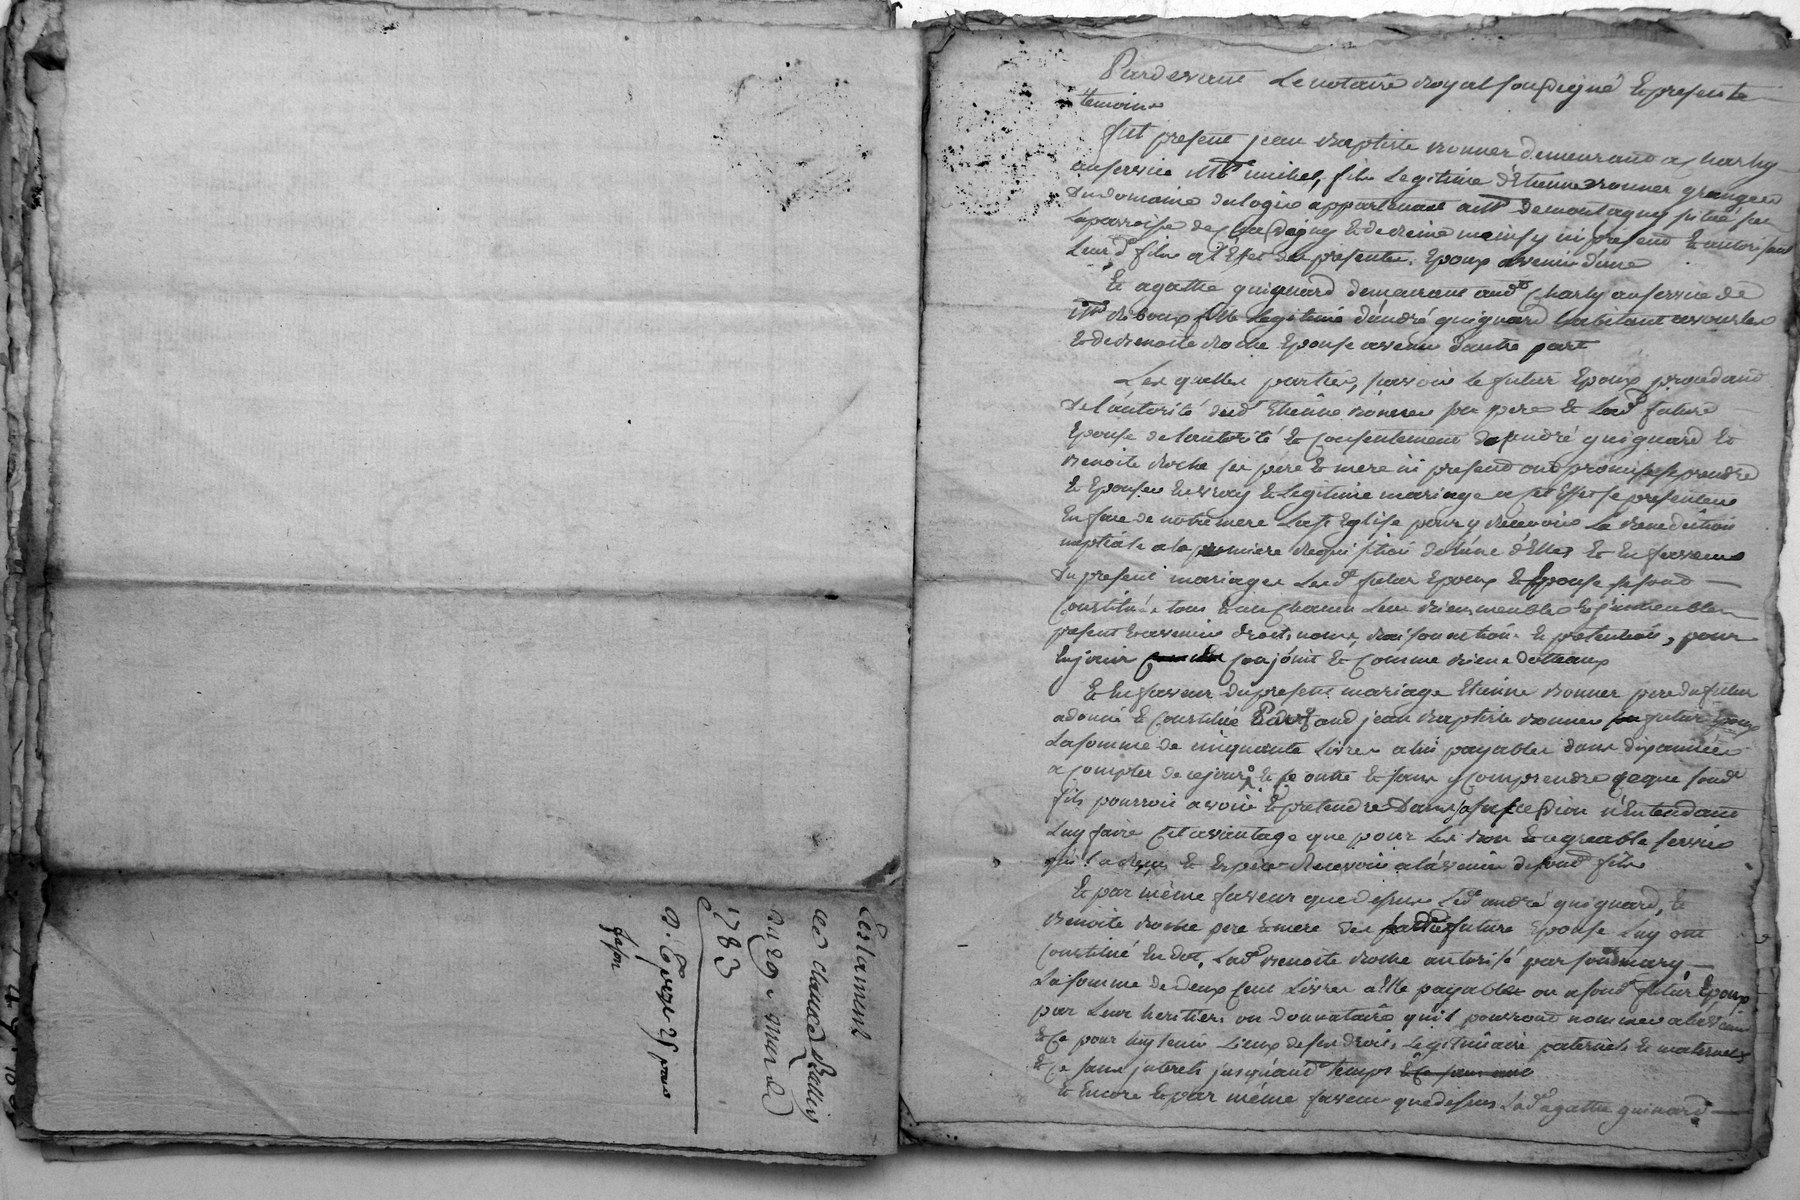 Testament
de claude
du 29e
1783
Pardevant Le notaire royal soussigné Et presents
temoins
fut present jean Baptiste Bonner demeurant a Charly
au service Mr michel, fils Legitime d'Etienne Bonner granger
du domaine du logis appartenant a Mr demontagny situé sur
La parroisse de et de ici present Et autorisant
Leur d. fils a l'Effet des presentes. Epoux avenir d'une
Et agathe guignard demeurant aud. Charly au service de
fille Legitime d'andré guignard habitant a vourles
Et de Benoite Roche Epouse avenir d'autre part
Les quelles parties, savoir le futur Epoux procedant
de l'autorité dud. Etienne Bonner son pere Et Lad. future
Epouse de lautorité Et Consentement dandré guignard Et
Benoite Roche ses pere Et mere ici present ont promis se prendre
Et Epouser En vray Et Legitime mariage a set Effet se presenteront
En face de notre mere Ste Eglise pour y Recevoir La Benediction
nuptiale a la premiere Requisition de l'une d'Elles Et En faveur
du present mariage Lesd. futur Epoux Et Epouse se sont
Constitués tous Et un Chacun Leur Biens meubles Et immeubles
present Et avenir droits, noms, Raisons actions Et pretentions, pour
En jouir Conjoint Et Comme Biens dotteaux
Et En faveur du present mariage Etienne Bonner pere du futur
a donné Et Constitué aud jean Baptiste Bonner futur Epoux
La somme de cinquante Livres a lui payables dans dix années
a Compter de ce jour Et ce outre Et sans y Comprendre ce que sond.
fils pourroit avoir Et pretendre Dans sa succession n'Entendant
Luy faire Cet avantage que pour Les Bon Et agreable service
qu'il a Et Espere Recevoir a l'avenir de sond. fils
Et par même faveur que dessus Led. andré guignard, Et
Benoite Roche pere Et mere de future Epouse Luy ont
Constitué En dot, Lad. Benoite Roche autorisé par sond. mary,
La somme de deux Cent Livres a Elle payables ou a sond. futur Epoux
par Leur heritiers ou donnataire qu'il pourront nommer a l'avenir
Et Ce pour luy tenir Lieux de ses droits Legitimaire paternels Et maternels
Et Ce sans interets jusqu'aud. temps
Et Encore Et par même faveur que dessus Lad. agathe guinard